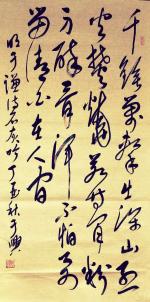 千錘萬擊出深山烈
火焚燒若等閒粉
身碎骨渾不怕要
留清白在人間
明于謙詩石灰吟丁亥秋